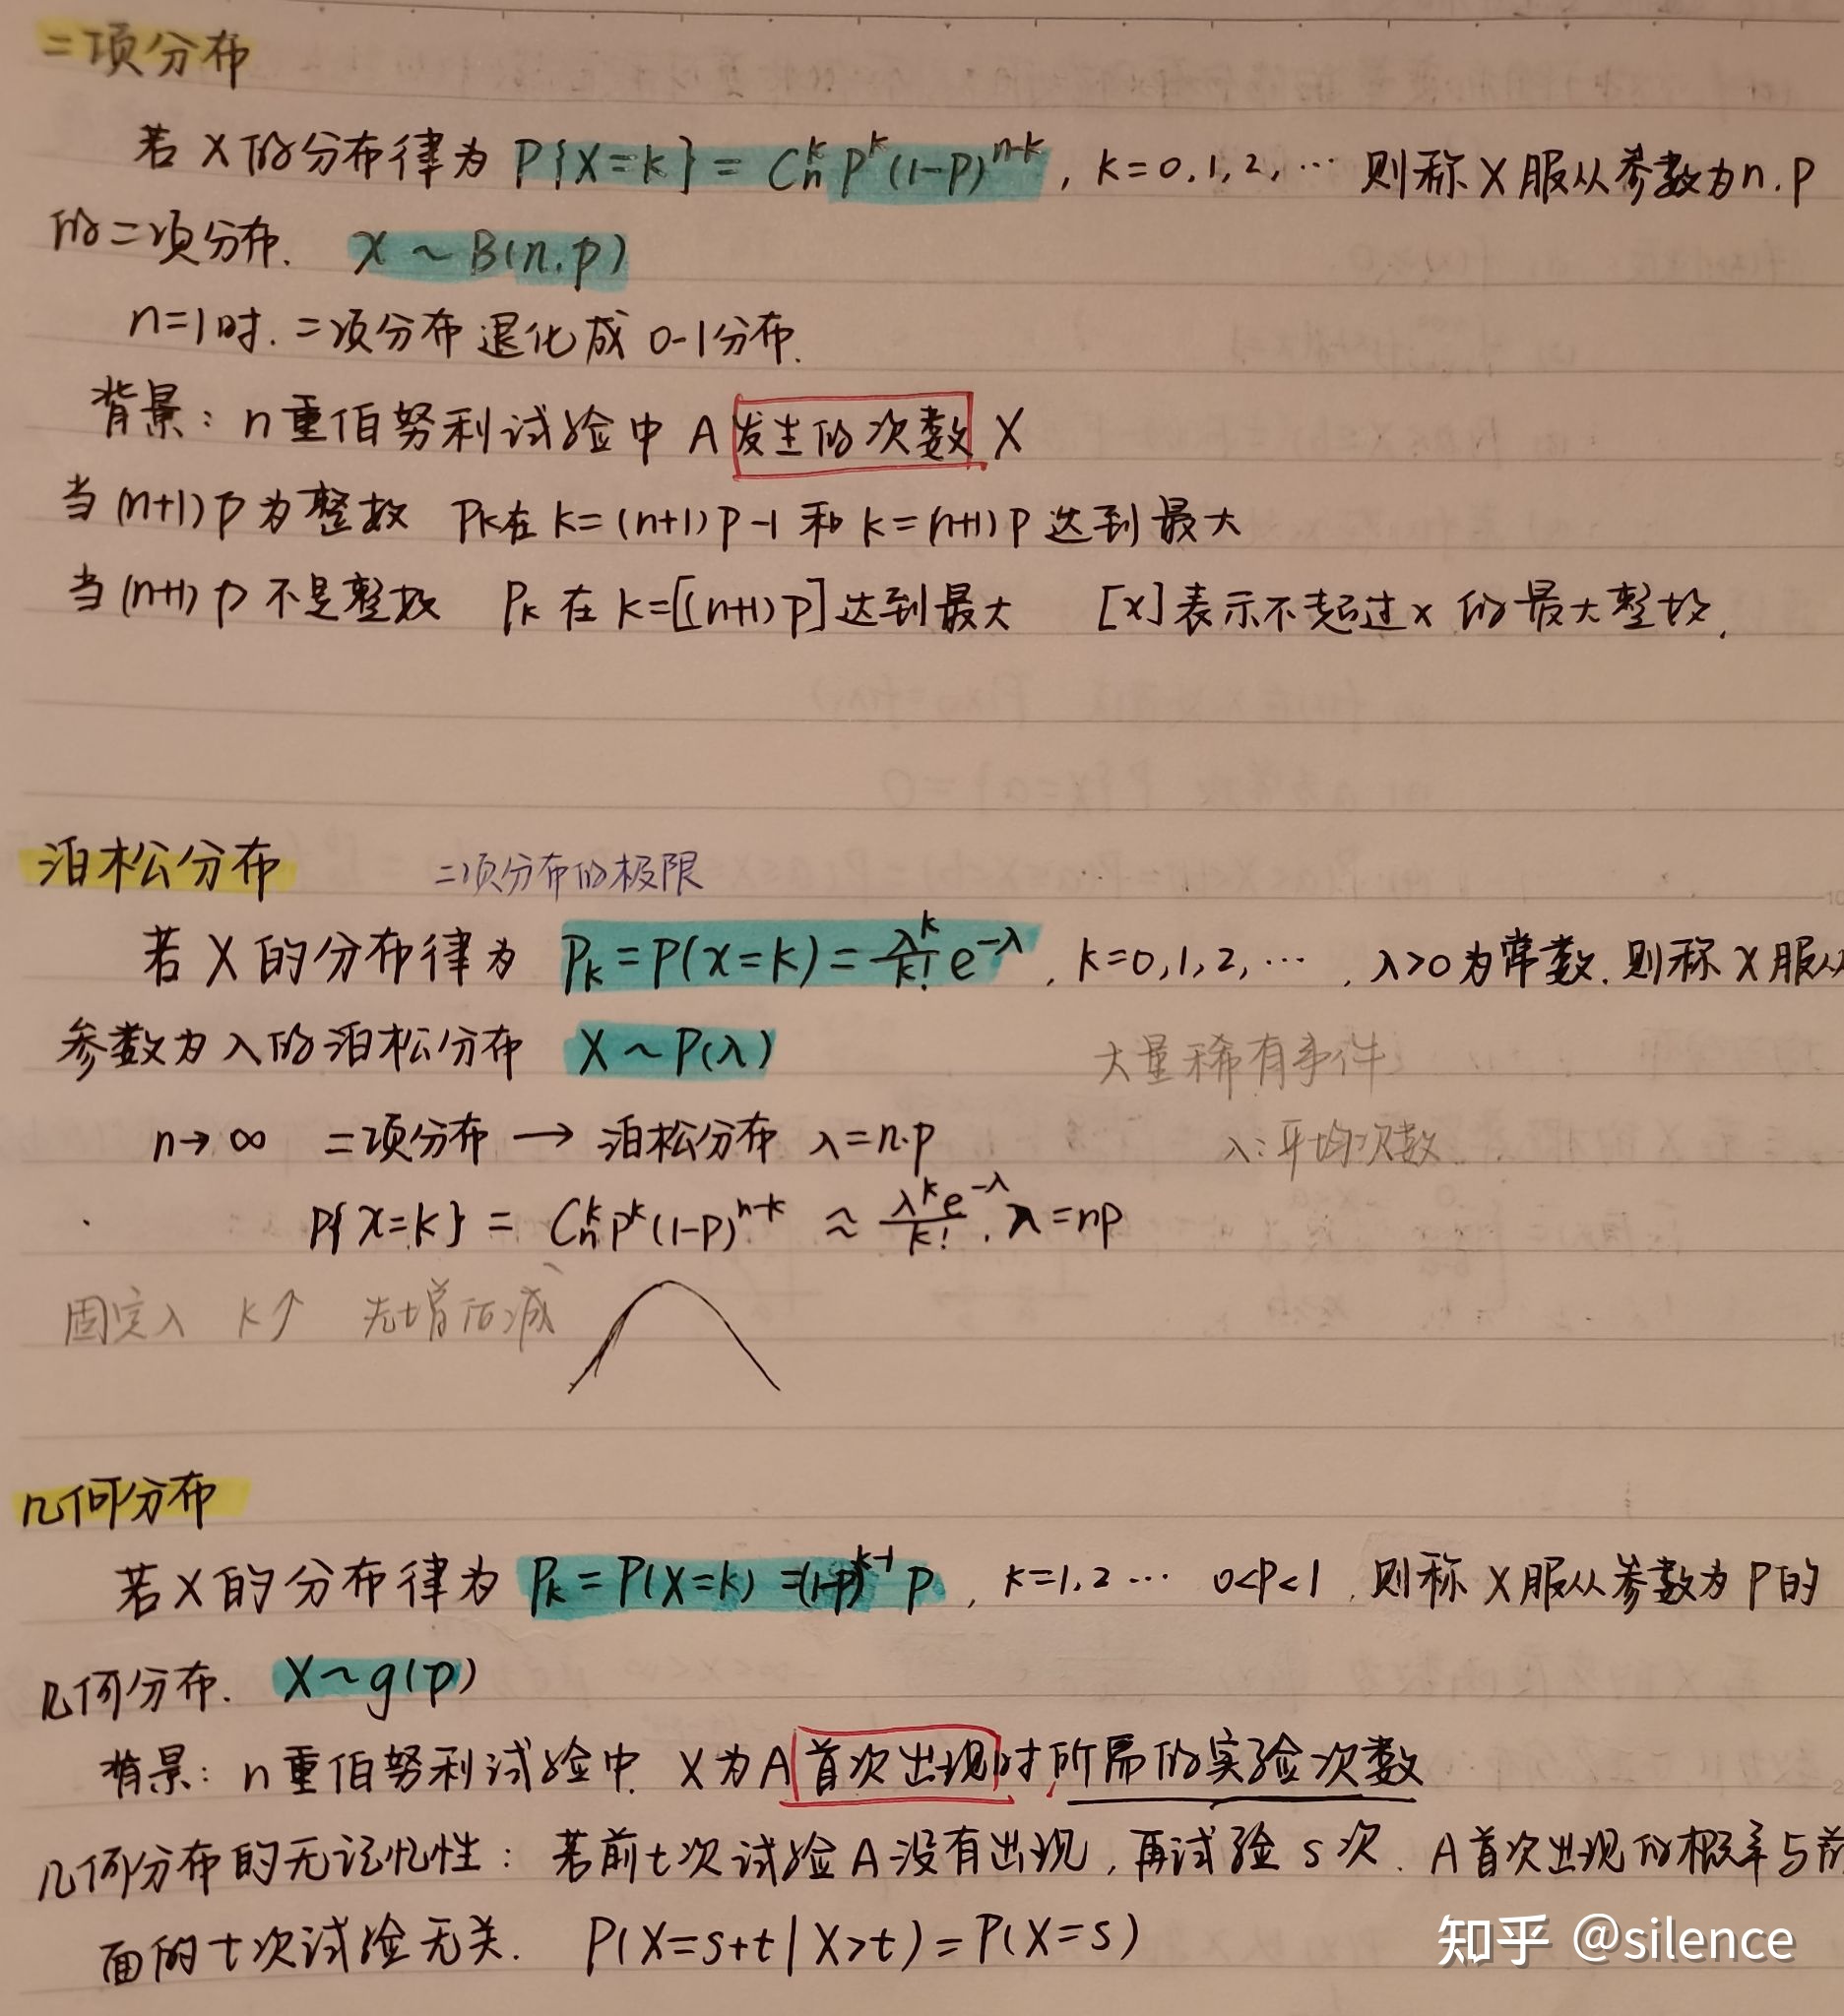 二项分布
若X的分布律为 P{X=k} = Cₙᵏ pᵏ (1-p)ⁿ⁻ᵏ, k=0,1,2,… 则称X服从参数为n.p
的二项分布. X ~ B(n.p)
n=1时.二项分布退化成 0-1分布.
背景: n重伯努利试验中 A发生的次数 X
当(n+1)p为整数 Pₖ在 k=(n+1)p-1 和 k=(n+1)p 达到最大
当(n+1)p不是整数 Pₖ在 k=[(n+1)p]达到最大 [x]表示不超过x的最大整数.
泊松分布 二项分布的极限
若X的分布律为 Pₖ=P(x=k)=λᵏ/k! e^{-λ}, k=0,1,2,… , λ>0为常数.则称X服从
参数为λ的泊松分布 X~P(λ) 大量稀有事件
n→∞ 二项分布 → 泊松分布 λ=n.p λ:平均次数
P{x=k} = Cₙᵏ pᵏ (1-p)ⁿ⁻ᵏ ≈ λᵏe^{-λ}/k! . λ=np
固定λ k↑ 先增后减
几何分布
若X的分布律为 Pₖ=P(X=k)=(1-p)ᵏ⁻¹ p, k=1,2… 0<p<1 .则称X服从参数为p的
几何分布. X~g(p)
背景: n重伯努利试验中. X为A首次出现时所需的实验次数
几何分布的无记忆性: 若前t次试验A没有出现,再试验s次.A首次出现的概率与前
面的t次试验无关. P(X=s+t|X>t)=P(X=s)
知乎 @silence